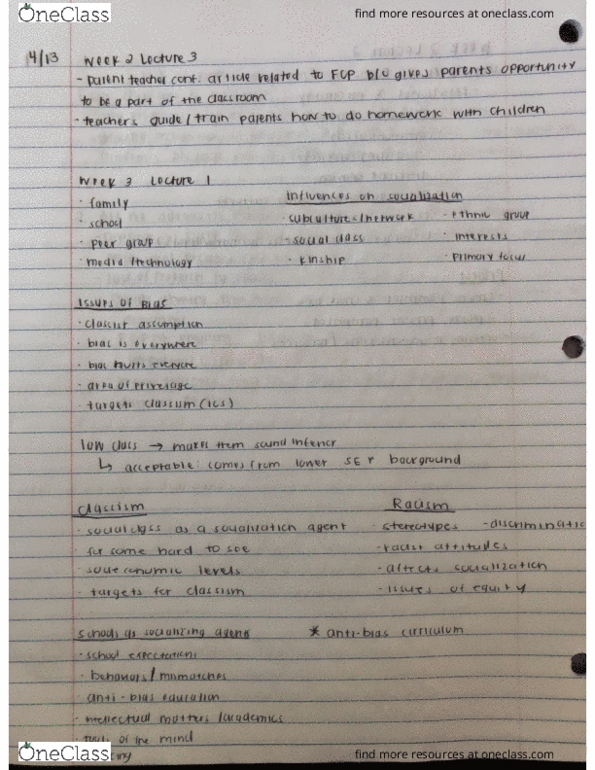 OneClass find more resources at oneclass.com
4/13 Week 2 Lecture 3
- Parent teacher conf. article related to FCP b/c gives parents opportunity
to be a part of the classroom
- teachers guide/train parents how to do homework with children
Week 3 Lecture 1
· family
· school
· peer group
· media/technology
Influences on socialization
· subcultures/network · Ethnic group
· social class · interests
· kinship · Primary focus
Issues of Bias
· classist assumption
· bias is everywhere
· bias hurts everyone
· area of privelage
· targets classism
low class → makes them sound inferior
↳ acceptable: comes from lower SE background
classism
· social class as a socialization agent
· for some hard to see
· levels
· targets for classism
Racism
· stereotypes -discriminatio
· racist attitudes
· affects socialization
· issues of equity
schools as socializing agents * anti-bias curriculum
· school expectations
· behaviors/mismatches
· anti-bias education
· intellectual matters/academics
· tools of the mind
OneClass find more resources at oneclass.com